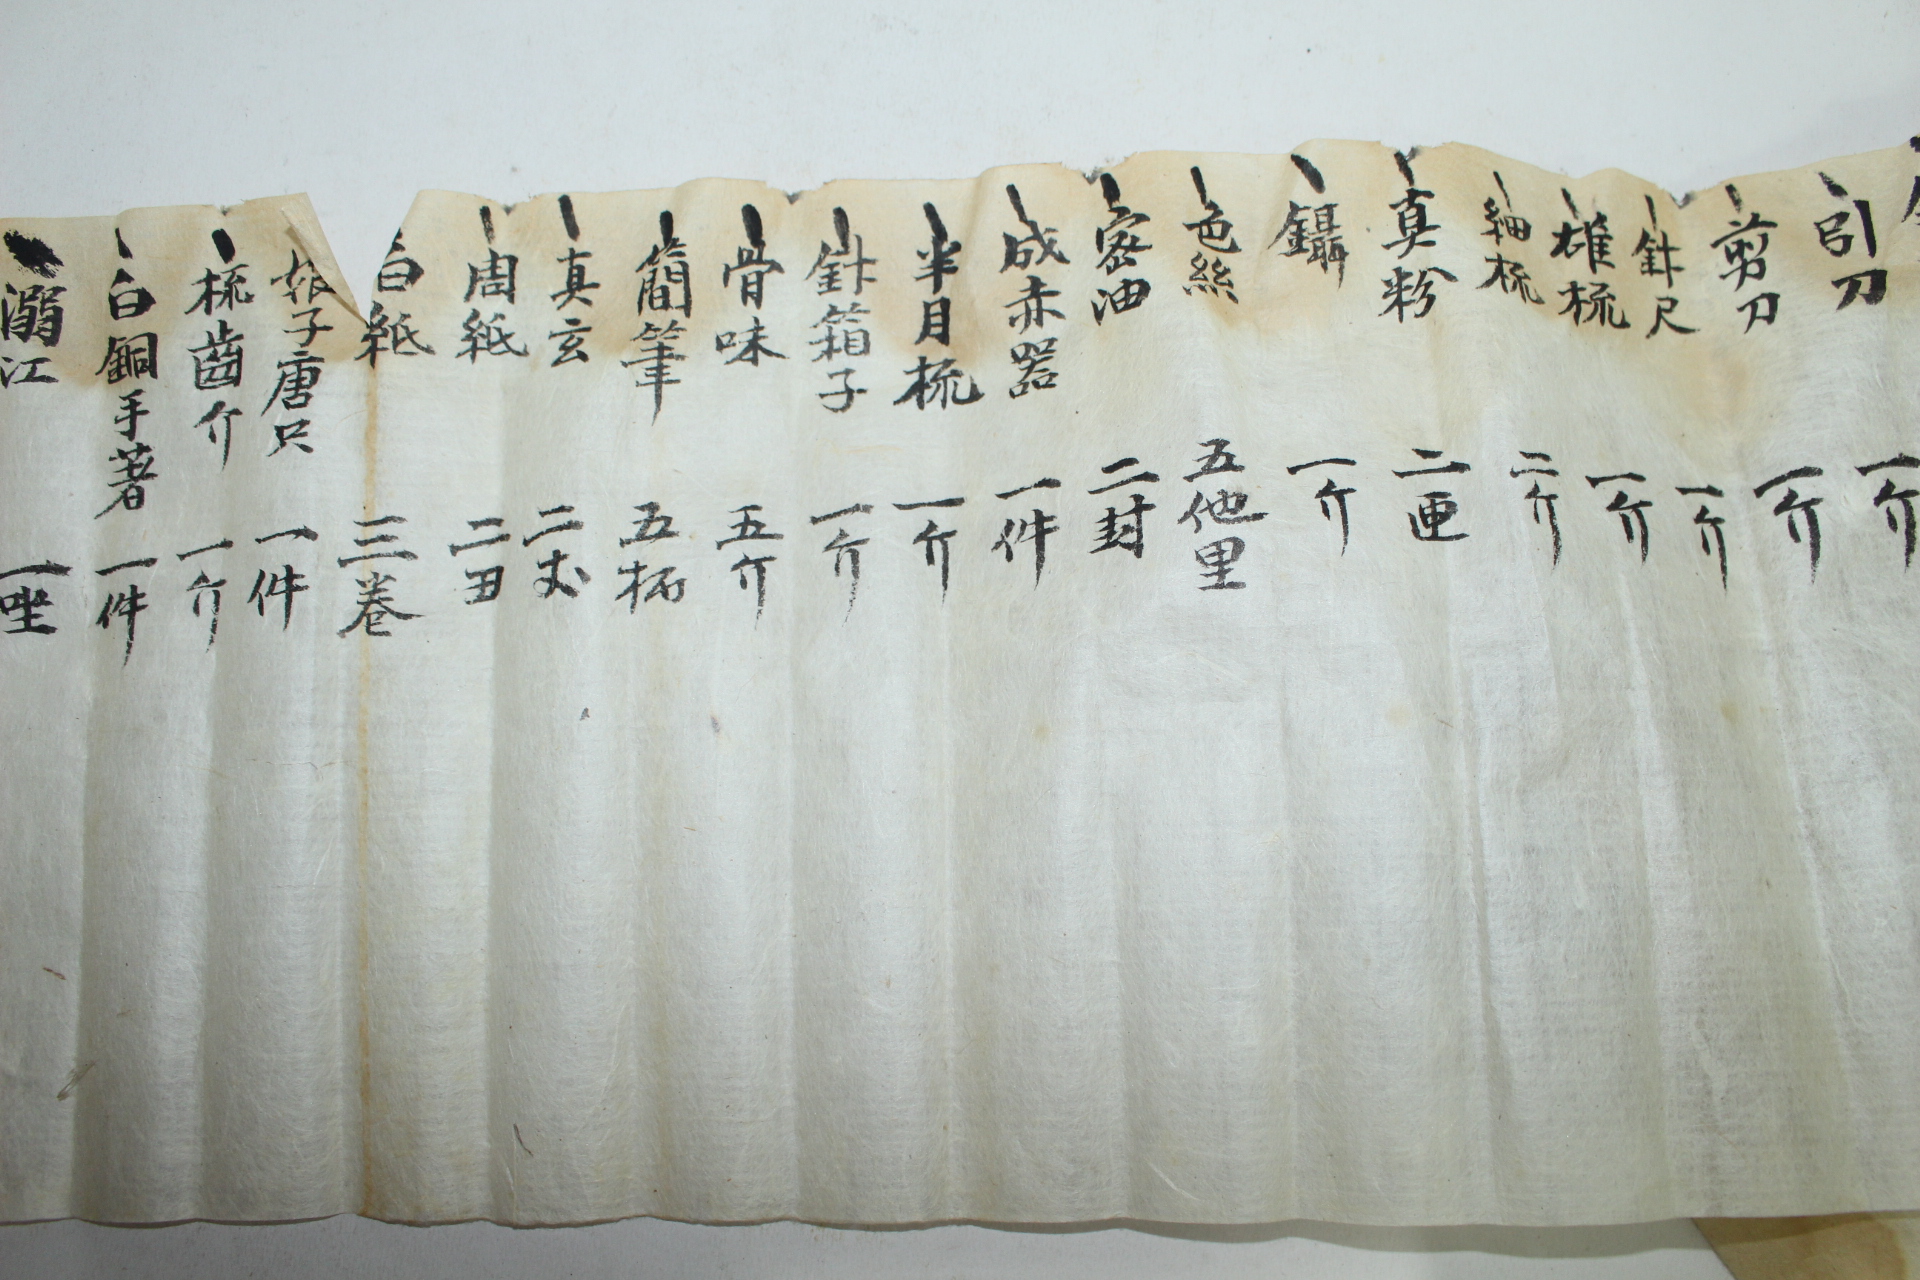 引刀 一介
剪刀 一介
針尺 一介
雄梳 一介
細梳 二介
真粉 二匣
鑷 一介
色絲 五他里
密油 二封
成赤器 一件
半月梳 一介
針箱子 一介
骨味 五介
簡筆 五柄
真玄 二丈
周紙 二丑
白紙 三卷
娘子唐只 一件
梳齒介 一介
白銅手著 一件
溺江 一坐